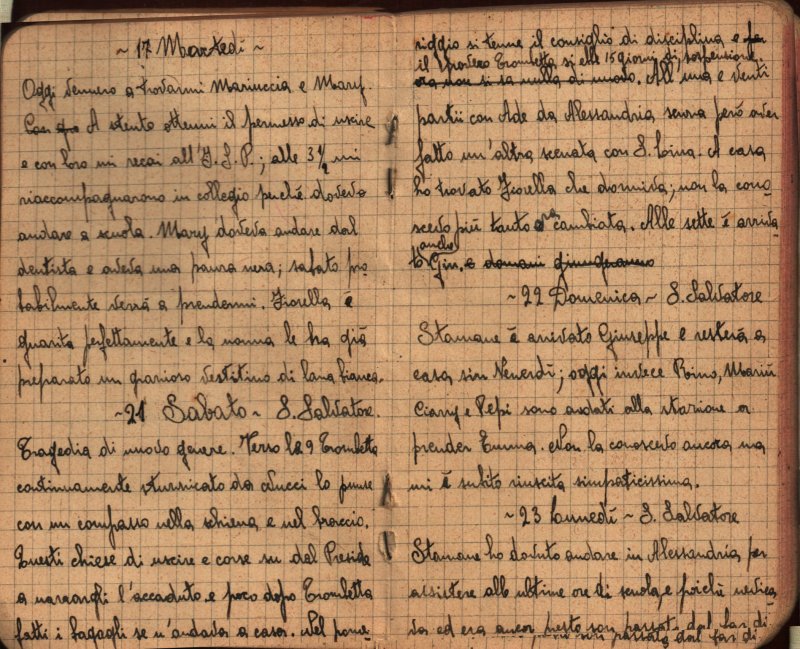 ~ 17 Martedì ~
Oggi vennero a trovarmi Mariuccia e Mary.
A stento ottenni il permesso di uscire
e con loro mi recai all'I. S. P.; alle 3 1/2 mi
riaccompagnarono in collegio perché dovevo
andare a scuola. Mary doveva andare dal
dentista e aveva una paura nera; sabato pro-
babilmente verrà a prendermi. Fiorella è
guarita perfettamente e la nonna le ha già
preparato un grazioso vestitino di lana bianca.
~ 21 Sabato ~ S. Salvatore.
Tragedia di nuovo genere. Verso le 9 Trombetta
continuamente stuzzicato da Nucci lo punse
con un compasso nella schiena e nel braccio.
Questi chiese di uscire e corse su dal Preside
a narrargli l'accaduto e poco dopo Trombetta
fatti i bagagli se n'andava a casa. Nel pome-
riggio si tenne il consiglio di disciplina e
il povero Trombetta si ebbe 15 giorni di sospensione
ora non si sa nulla di nuovo. All'una e venti
partii con Ade da Alessandria senza però aver
fatto un'altra scenata con S. A casa
ho trovato Fiorella che dormiva; non la cono-
scevo più tanto era cambiata. Alle sette è arriva-
to anche Gin. e domani
~ 22 Domenica ~ S. Salvatore
Stamane è arrivato Giuseppe e resterà a
casa sin Venerdì; oggi invece Mariù
e Pepi sono andati alla stazione a
prender Emma. Non la conoscevo ancora ma
mi è subito riuscita simpaticissima.
~ 23 Lunnedì ~ S. Salvatore
Stamane ho dovuto andare in Alessandria per
assistere alle ultime ore di scuola, e poiché
ed era ancor presto son passata dal